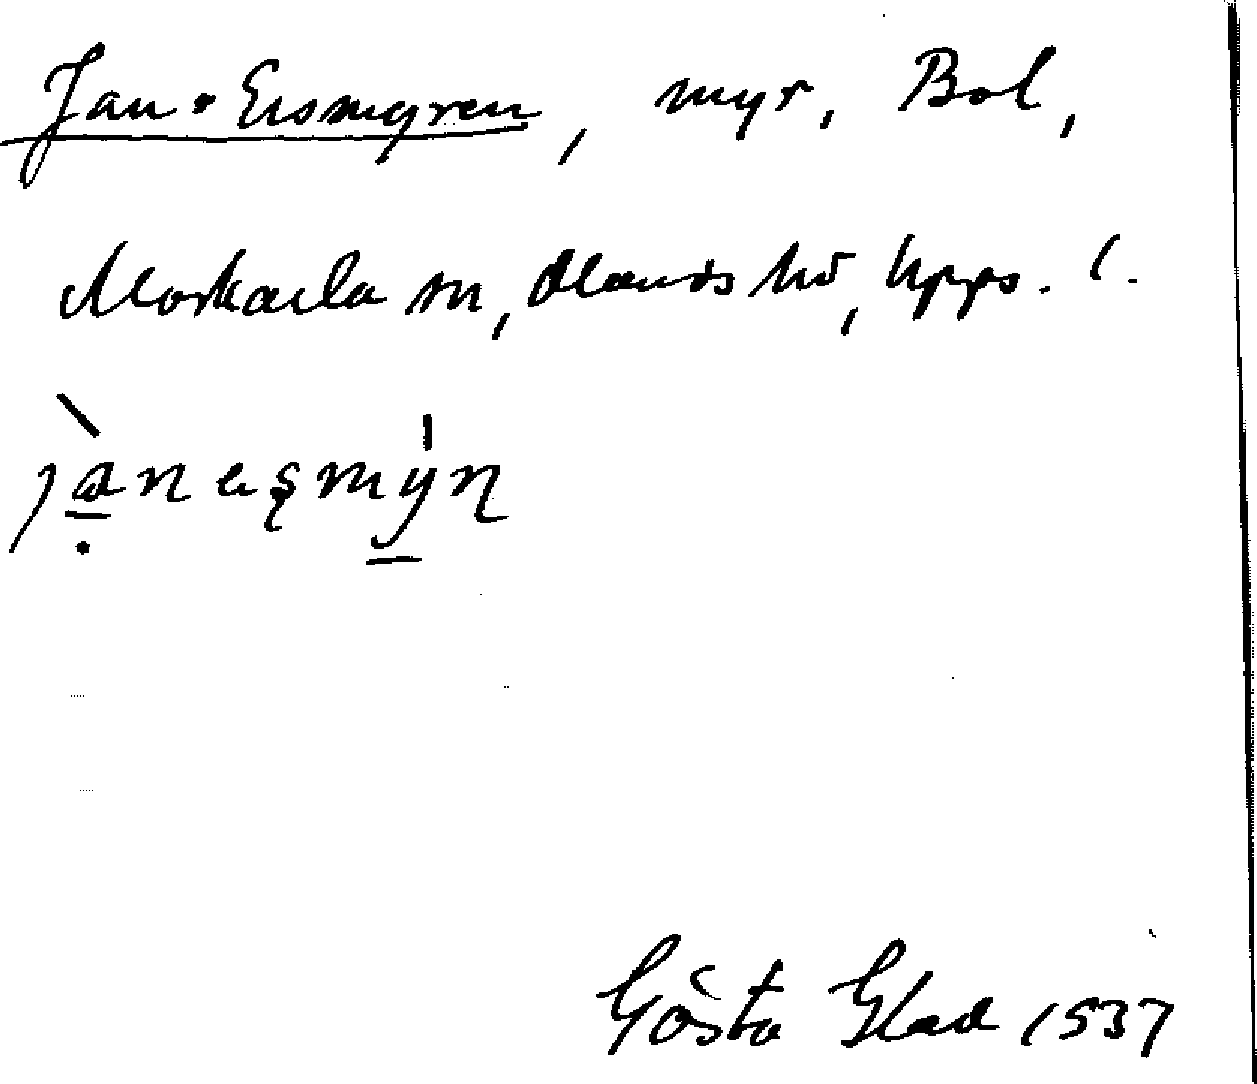 Jan-Ersmyren, myr, Bol,
Morkarla sn, Olands hd, Upps. l.
Gösta Glad 1937